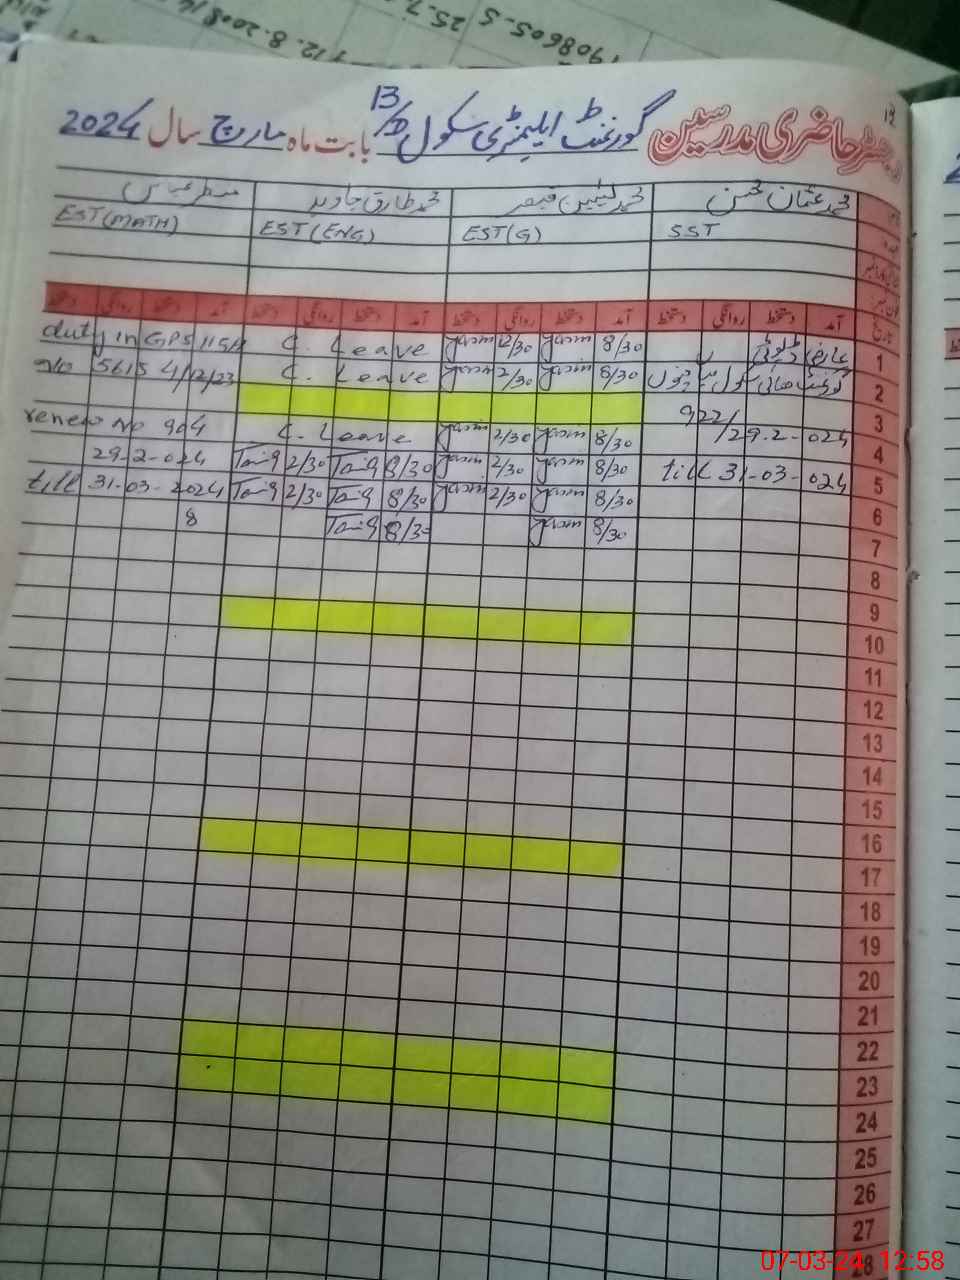 908605.5 25.7.
12.8.2008
12
رجسٹر حاضری مدرسین گورنمنٹ ایلیمنٹری سکول 13/D بابت ماہ مارچ سال 2024
محمد عثمان محسن محمد یٰسین قیصر محمد طارق جاوید منظر عباس
SST EST(G) EST(ENG) EST(MATH)
تاریخ آمد دستخط روانگی دستخط آمد دستخط روانگی دستخط آمد دستخط روانگی دستخط آمد دستخط روانگی دستخط
1 عارضی ڈیوٹی 8/30 Yasin 12/30 Yasin C. Leave duty in GPS 115A
2 گورنمنٹ ہائی سکول 8/30 Yasin 2/30 Yasin C. Leave No 5615 4/12/23
3 922/
4 29.2-024 8/30 Yasin 2/30 Yasin C. Leave renew No 904
5 till 31-03-024 8/30 Yasin 2/30 Yasin 8/30 Tariq 2/30 Tariq 29-2-024
6 8/30 Yasin 2/30 Yasin 8/30 Tariq 2/30 Tariq till 31-03-2024
7 8/30 Yasin 8/30 Tariq 8
8
9
10
11
12
13
14
15
16
17
18
19
20
21
22
23
24
25
26
27
28
07-03-24 12:58